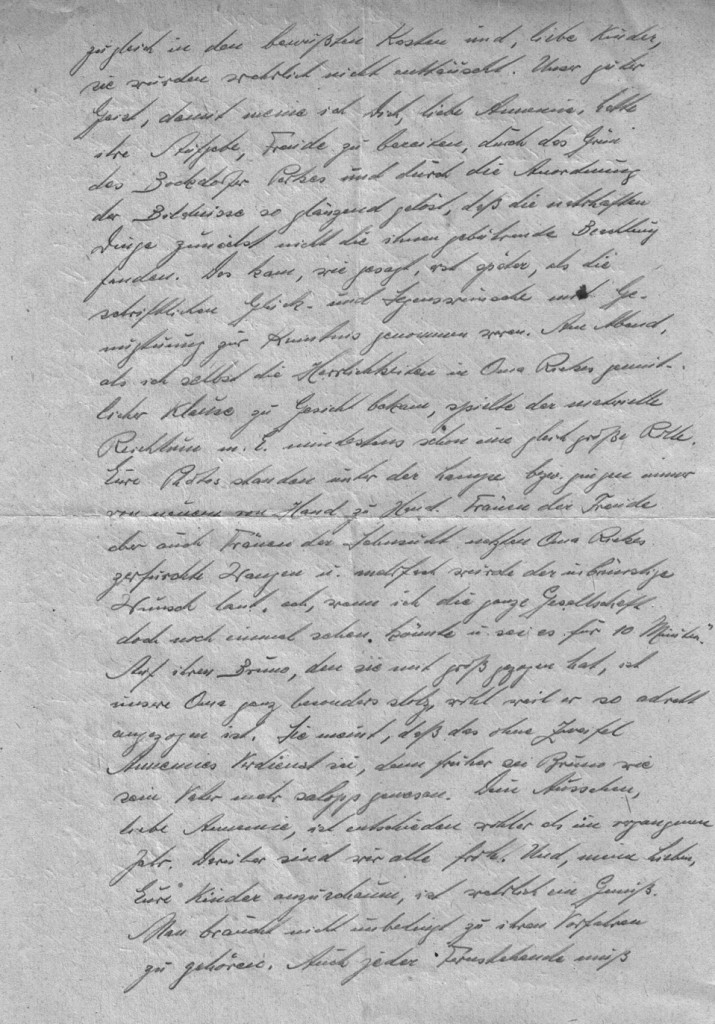 zugleich in den bewußten Kasten und, liebe Kinder,
sie wurden wahrlich nicht enttäuscht. Unser guter
Geist, damit meine ich Dich, liebe Annemie, hatte
ihre Aufgabe, Freude zu bereiten, durch das Grün
des Bockdorfer Parkes und durch die Anordnung
der Bildnisse so glänzend gelöst, daß die nahrhaften
Dinge zunächst nicht die ihnen gebührende Beachtung
fanden. Das kam, wie gesagt, erst später, als die
schriftlichen Glück- und Segenswünsche mit Ge-
nugtuung zur Kenntnis genommen waren. Am Abend,
als ich selbst die Herrlichkeiten in Oma Rickes gemüt-
licher Klause zu Gesicht bekam, spielte der materielle
Reichtum m. E. mindestens schon eine gleich große Rolle.
Eure Photos standen unter der Lampe bzw. gingen immer
von neuem von Hand zu Hand. Tränen der Freude
aber auch Tränen der Sehnsucht netzten Oma Rickes
zerfurchte Wangen u. mehrfach wurde der inbrünstige
Wunsch laut, ach, wenn ich die ganze Gesellschaft
doch noch einmal sehen könnte u. sei es für 10 Minuten."
Auf ihren Bruno, den sie mit groß gezogen hat, ist
unsere Oma ganz besonders stolz, wohl weil er so adrett
angezogen ist. Sie meint, daß das ohne Zweifel
Annemies Verdienst sei, denn früher sei Bruno wie
sein Vater mehr salopp gewesen. Dein Aussehen,
liebe Annemie, ist entschieden wohler als im vergangenen
Jahr. Darüber sind wir alle froh. Und, meine Lieben,
Eure Kinder anzuschauen, ist wahrlich ein Genuß.
Man braucht nicht unbedingt zu ihren Vorfahren
zu gehören. Auch jeder Fernstehende muß